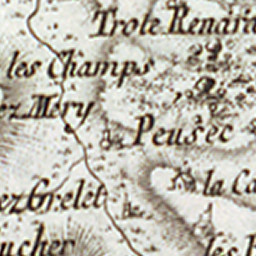 Trote Renard
les Champs
ez Mery
Peusec
la Ca
ez Grelet
ucher
les